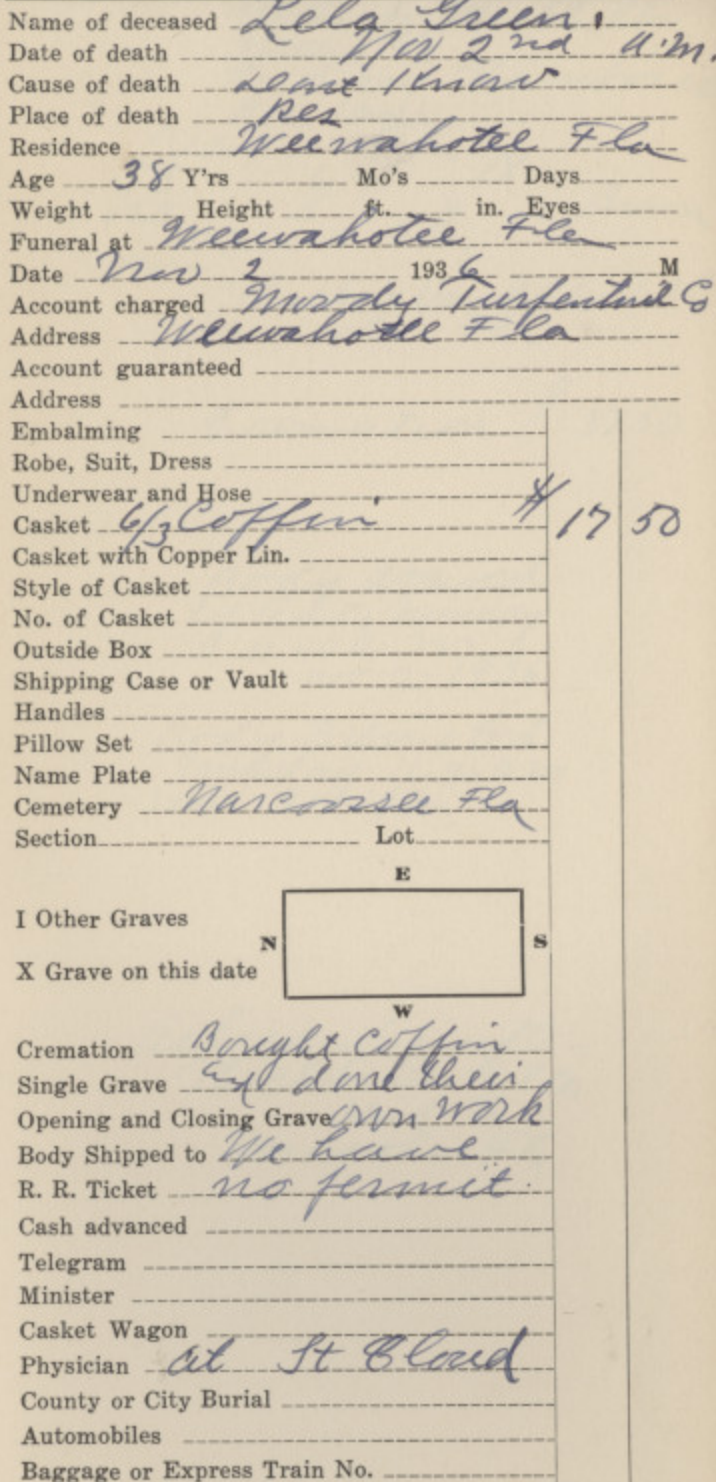 Name of deceased Lela Green.
Date of death Nov 2nd a.m.
Cause of death Dont Know
Place of death Res
Residence Weewahotee Fla
Age 38 Y'rs Mo's Days
Weight Height ft. in. Eyes
Funeral at Weewahotee Fla
Date Nov 2 1936 M
Account charged Moody Turpentine Co
Address Weewahotee Fla
Account guaranteed
Address
Embalming
Robe, Suit, Dress
Underwear and Hose
Casket 6/3 Coffin $ 17 50
Casket with Copper Lin.
Style of Casket
No. of Casket
Outside Box
Shipping Case or Vault
Handles
Pillow Set
Name Plate
Cemetery Narcoossee Fla
Section Lot
E
I Other Graves
N S
X Grave on this date
W
Cremation Bought Coffin
Single Grave and done their
Opening and Closing Grave own work
Body Shipped to We have
R. R. Ticket no permit.
Cash advanced
Telegram
Minister
Casket Wagon
Physician at St Cloud
County or City Burial
Automobiles
Baggage or Express Train No.